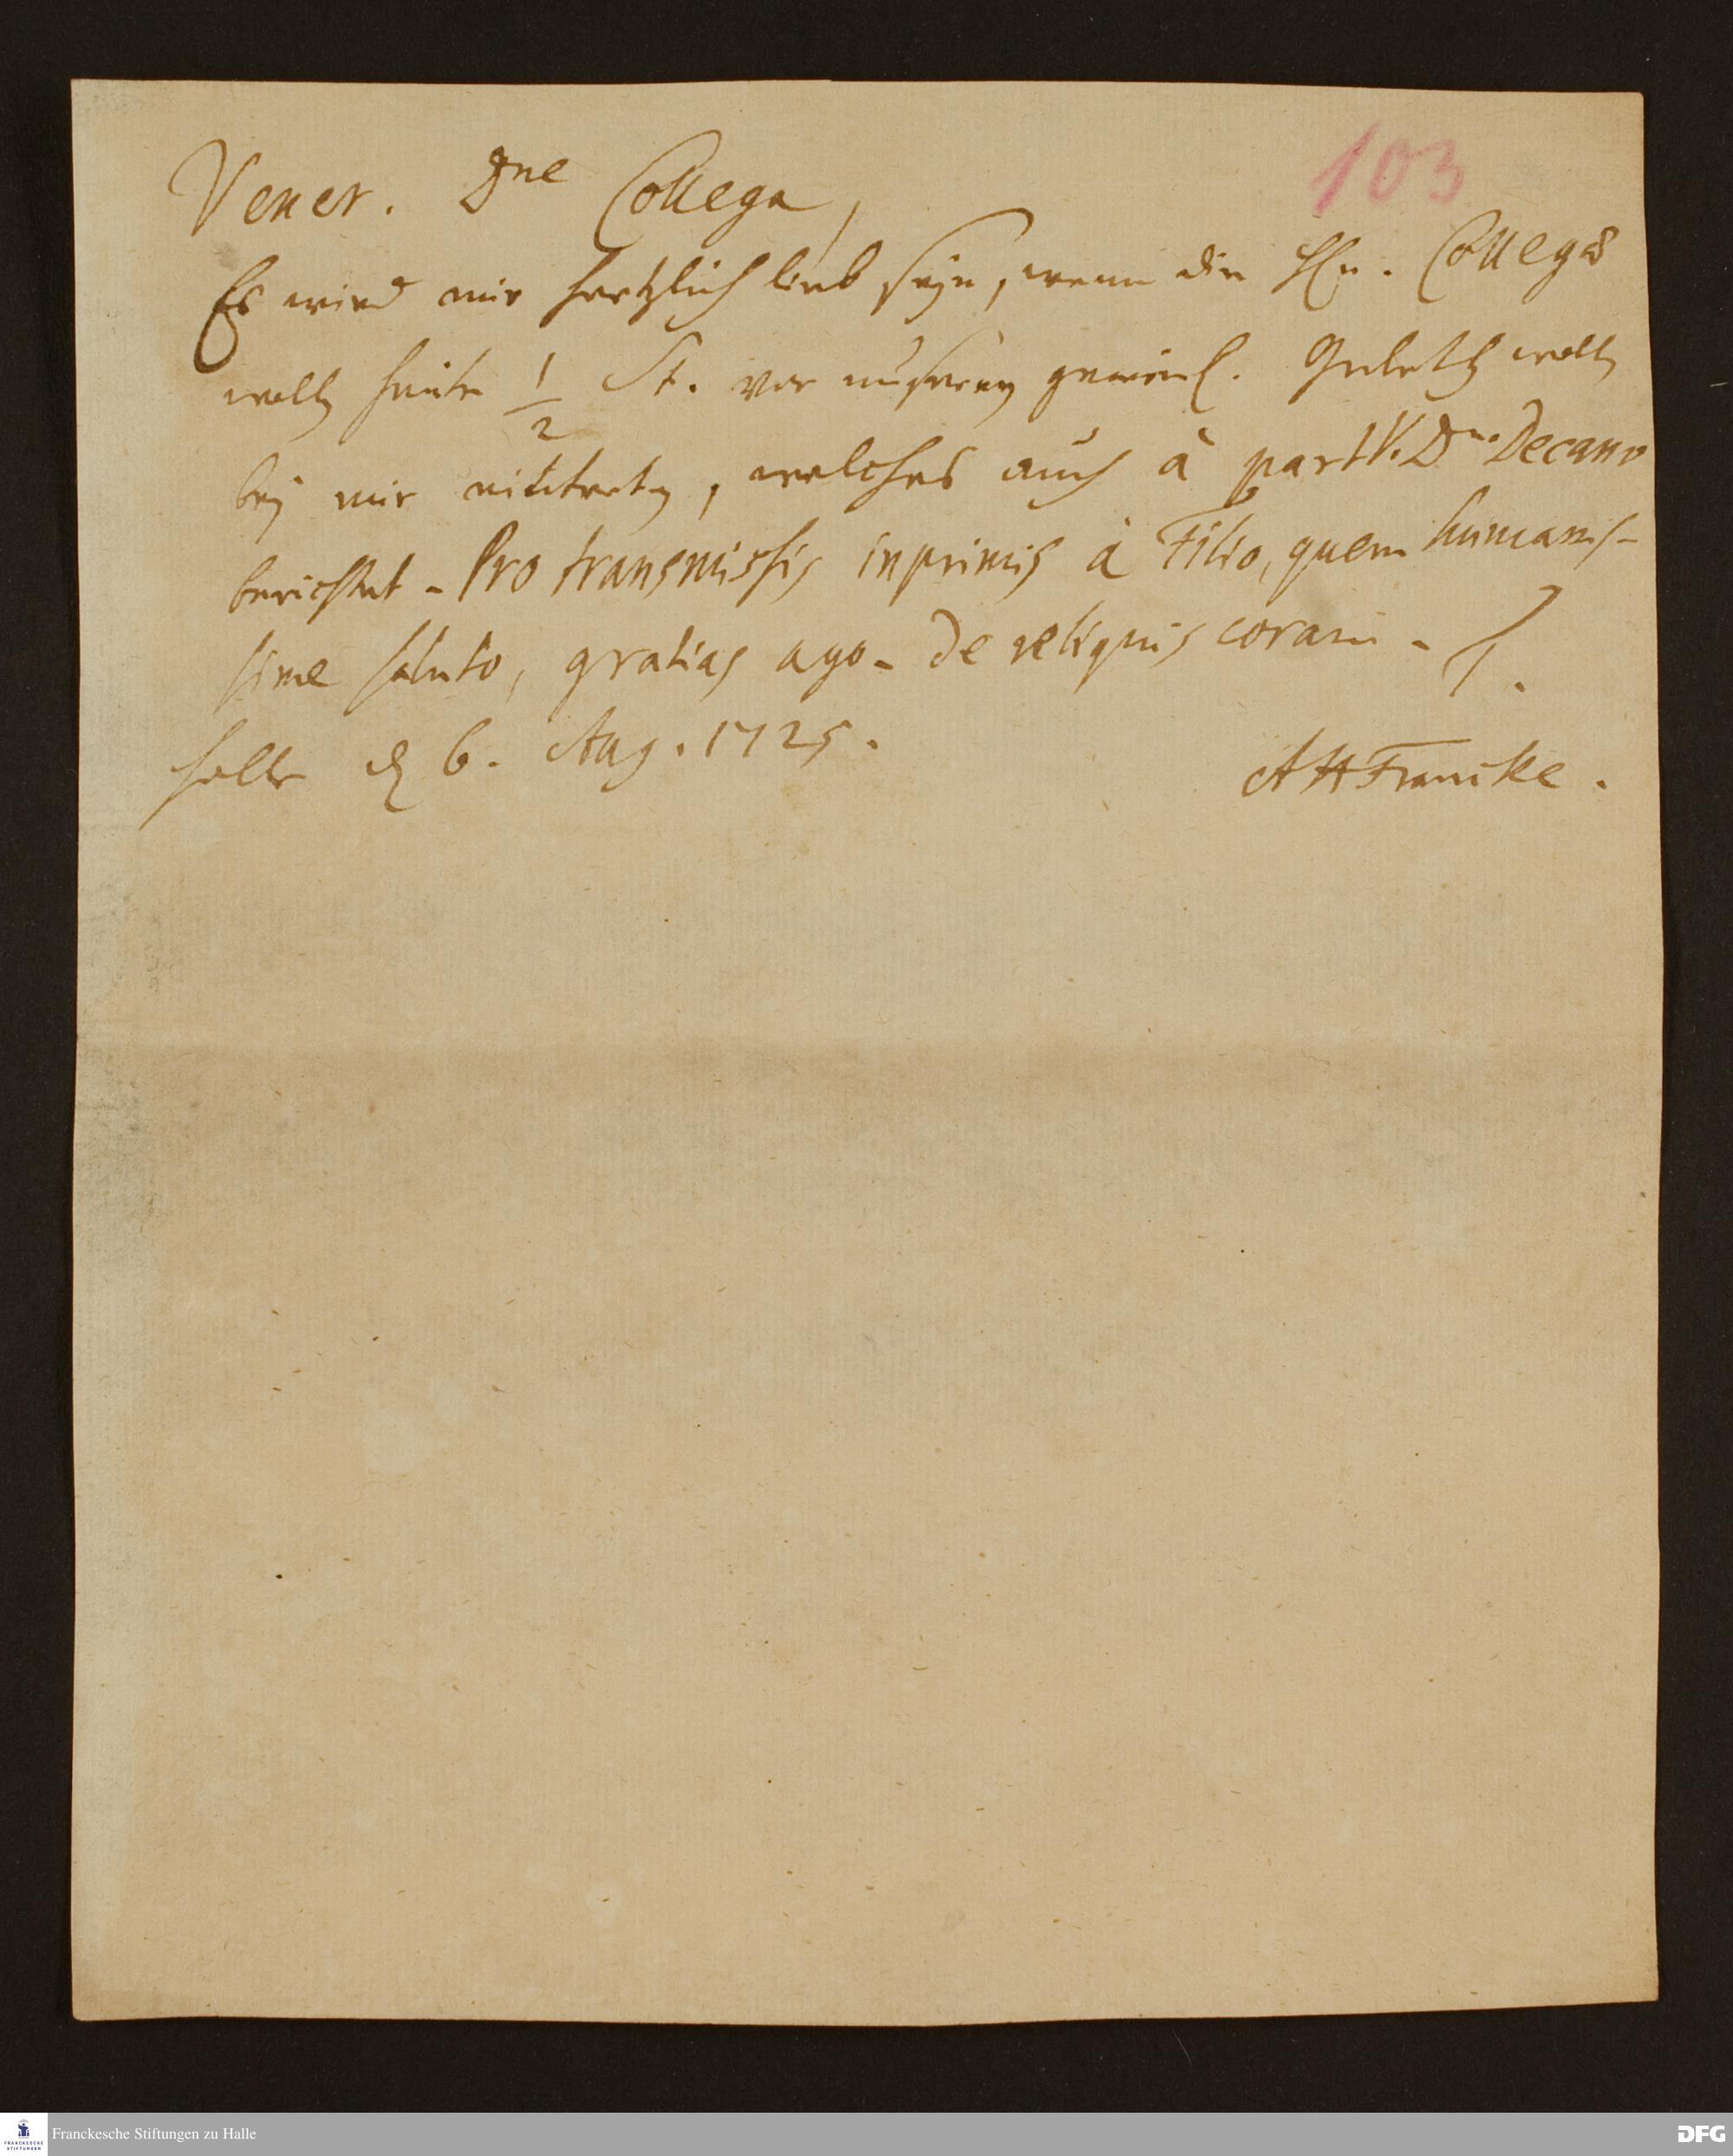 103
Vener. Dne Collega,
Es wird mir hertzlich lieb seyn, wenn die HEn. Collegæ
wolln heute 1/2 St. vor unserm gemeinschl. Gebeth wolln
bey mir eintreten, welches auch à part V. Dno Decano
berichtet. Pro transmissis inprimis à Filio, quem humanis-
sime saluto, gratias ago. De reliquis coram.
Halle d 6. Aug. 1725.
AHFrancke.
FRANCKESCHE STIFTUNGEN
Franckesche Stiftungen zu Halle
DFG